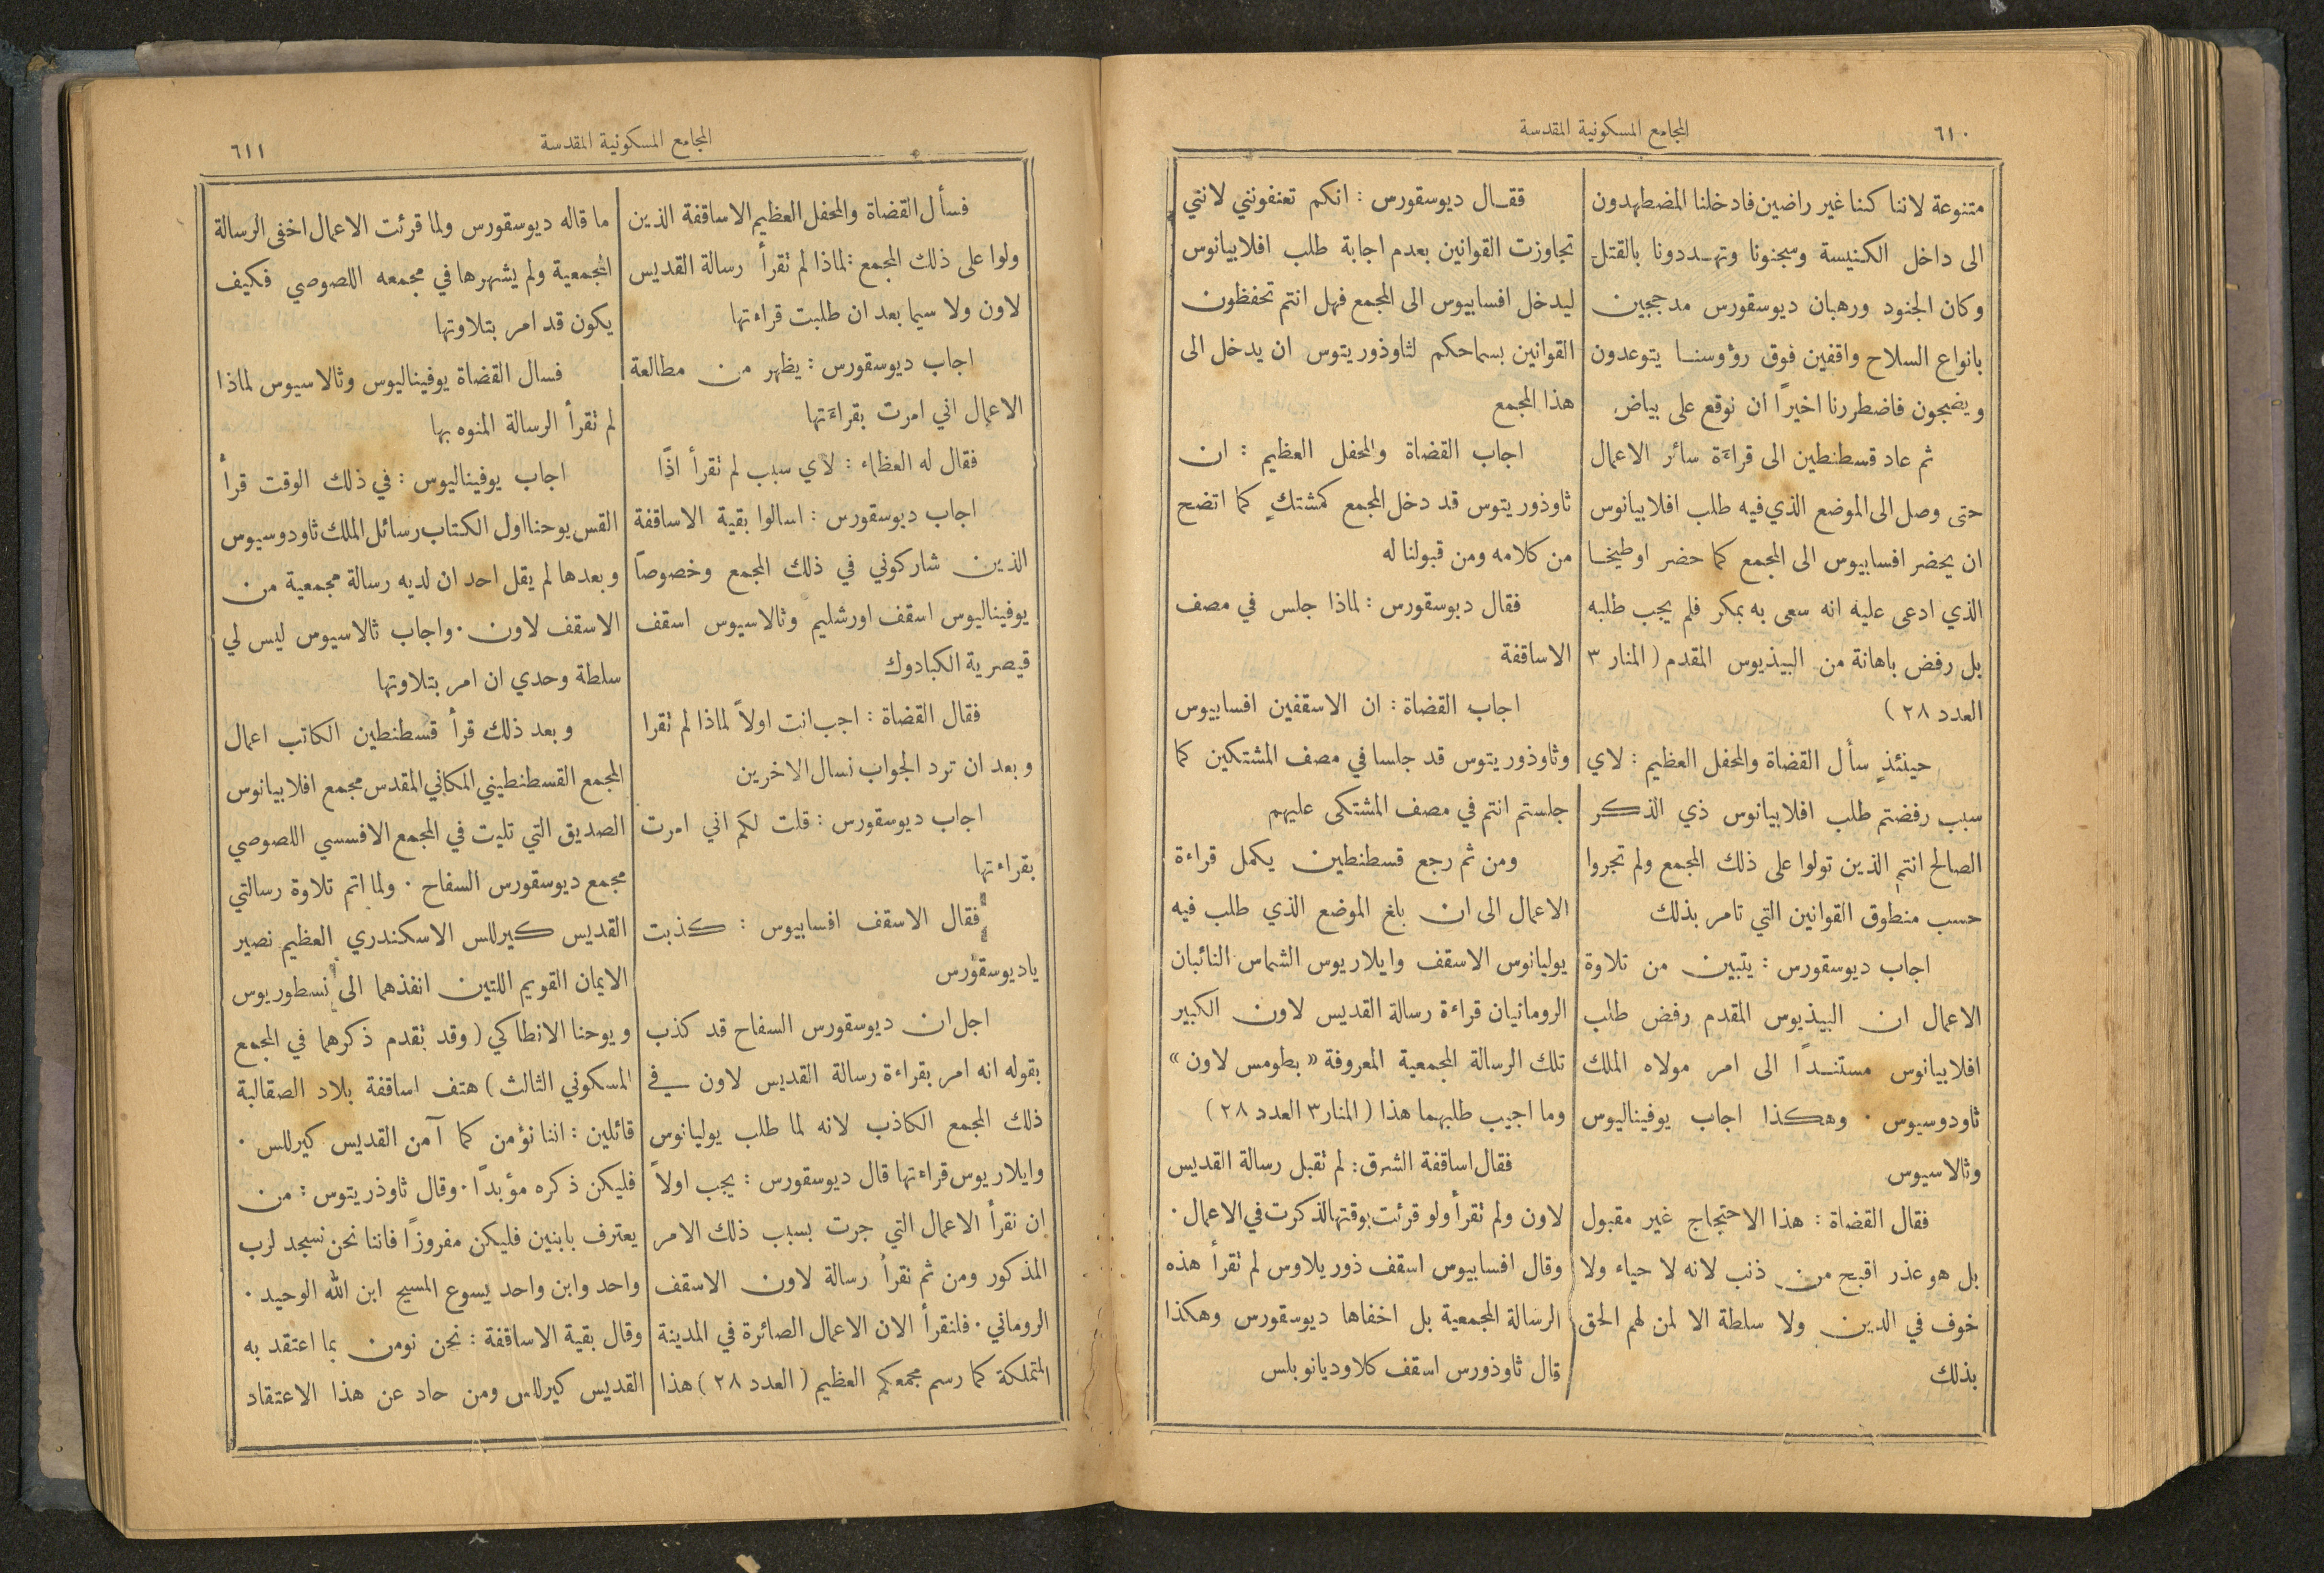 ٦١٠
المجامع المسكونية المقدسة
متنوعة لاننا كنا غير راضين فادخلنا المضطهدون
الى داخل الكنيسة وسجنونا وتهددونا بالقتل
وكان الجنود ورهبان ديوسقورس مدججين
بانواع السلاح واقفين فوق رؤوسنا يتوعدون
ويضجون فاضطررنا اخيرًا ان نوقع على بياض
ثم عاد قسطنطين الى قراءة سائر الاعمال
حتى وصل الى الموضع الذي فيه طلب افلابيانوس
ان يحضر افسابيوس الى المجمع كما حضر اوطيخا
الذي ادعى عليه انه سعى به بمكر فلم يجب طلبه
بل رفض باهانة من البيذيوس المقدم (المنار ٣
العدد ٢٨)
حينئذٍ سأل القضاة والمحفل العظيم : لاي
سبب رفضتم طلب افلابيانوس ذي الذكر
الصالح انتم الذين تولوا على ذلك المجمع ولم تجروا
حسب منطوق القوانين التي تامر بذلك
اجاب ديوسقورس : يتبين من تلاوة
الاعمال ان البيذيوس المقدم رفض طلب
افلابيانوس مستندًا الى امر مولاه الملك
ثاودوسيوس . وهكذا اجاب يوفيناليوس
وثالاسيوس
فقال القضاة : هذا الاحتجاج غير مقبول
بل هو عذر اقبح من ذنب لانه لا حياء ولا
خوف في الدين ولا سلطة الا لمن لهم الحق
بذلك
فقال ديوسقورس : انكم تعنفونني لانني
تجاوزت القوانين بعدم اجابة طلب افلابيانوس
ليدخل افسابيوس الى المجمع فهل انتم تحفظون
القوانين بسماحكم لثاوذوريتوس ان يدخل الى
هذا المجمع
اجاب القضاة والمحفل العظيم : ان
ثاوذوريتوس قد دخل المجمع كمشتكٍ كما اتضح
من كلامه ومن قبولنا له
فقال ديوسقورس : لماذا جلس في مصف
الاساقفة
اجاب القضاة : ان الاسقفين افسابيوس
وثاوذوريتوس قد جلسا في مصف المشتكين كما
جلستم انتم في مصف المشتكى عليهم
ومن ثم رجع قسطنطين يكمل قراءة
الاعمال الى ان بلغ الموضع الذي طلب فيه
يوليانوس الاسقف وايلاريوس الشماس النائبان
الرومانيان قراءة رسالة القديس لاون الكبير
تلك الرسالة المجمعية المعروفة « بطومس لاون »
وما اجيب طلبهما هذا (المنار ٣ العدد ٢٨)
فقال اساقفة الشرق : لم تقبل رسالة القديس
لاون ولم تقرأ ولو قرئت بوقتها لذكرت في الاعمال .
وقال افسابيوس اسقف ذوريلاوس لم تقرأ هذه
الرسالة المجمعية بل اخفاها ديوسقورس وهكذا
قال ثاوذورس اسقف كلاوديانوبلس
المجامع المسكونية المقدسة
٦١١
فسأل القضاة والمحفل العظيم الاساقفة الذين
ولوا على ذلك المجمع : لماذا لم تقرأ رسالة القديس
لاون ولا سيما بعد ان طلبت قراءتها
اجاب ديوسقورس : يظهر من مطالعة
الاعمال اني امرت بقراءتها
فقال له العظماء : لاي سبب لم تقرأ اذًا
اجاب ديوسقورس : اسالوا بقية الاساقفة
الذين شاركوني في ذلك المجمع وخصوصاً
يوفيناليوس اسقف اورشليم وثالاسيوس اسقف
قيصرية الكبادوك
فقال القضاة : اجب انت اولاً لماذا لم تقرا
وبعد ان ترد الجواب نسال الاخرين
اجاب ديوسقورس : قلت لكم اني امرت
بقراءتها
فقال الاسقف افسابيوس : كذبت
ياديوسقورس
اجل ان ديوسقورس السفاح قد كذب
بقوله انه امر بقراءة رسالة القديس لاون في
ذلك المجمع الكاذب لانه لما طلب يوليانوس
وايلاريوس قراءتها قال ديوسقورس : يجب اولاً
ان نقرأ الاعمال التي جرت بسبب ذلك الامر
المذكور ومن ثم نقرأ رسالة لاون الاسقف
الروماني . فلنقرأ الان الاعمال الصائرة في المدينة
المتملكة كما رسم مجمعكم العظيم (العدد ٢٨) هذا
ما قاله ديوسقورس ولما قرئت الاعمال اخفى الرسالة
المجمعية ولم يشهرها في مجمعه اللصوصي فكيف
يكون قد امر بتلاوتها
فسال القضاة يوفيناليوس وثالاسيوس لماذا
لم تقرأ الرسالة المنوه بها
اجاب يوفيناليوس : في ذلك الوقت قرأ
القس يوحنا اول الكتاب رسائل الملك ثاودوسيوس
وبعدها لم يقل احد ان لديه رسالة مجمعية من
الاسقف لاون . واجاب ثالاسيوس ليس لي
سلطة وحدي ان امر بتلاوتها
وبعد ذلك قرأ قسطنطين الكاتب اعمال
المجمع القسطنطيني المكاني المقدس مجمع افلابيانوس
الصديق التي تليت في المجمع الافسسي اللصوصي
مجمع ديوسقورس السفاح . ولما اتم تلاوة رسالتي
القديس كيرللس الاسكندري العظيم نصير
الايمان القويم اللتين انفذهما الى نسطوريوس
ويوحنا الانطاكي (وقد تقدم ذكرهما في المجمع
المسكوني الثالث) هتف اساقفة بلاد الصقالبة
قائلين : اننا نؤمن كما آمن القديس كيرللس .
فليكن ذكره مؤبدًا . وقال ثاوذريتوس : من
يعترف بابنين فليكن مفروزًا فاننا نحن نسجد لرب
واحد وابن واحد يسوع المسيح ابن الله الوحيد .
وقال بقية الاساقفة : نحن نومن بما اعتقد به
القديس كيرللس ومن حاد عن هذا الاعتقاد